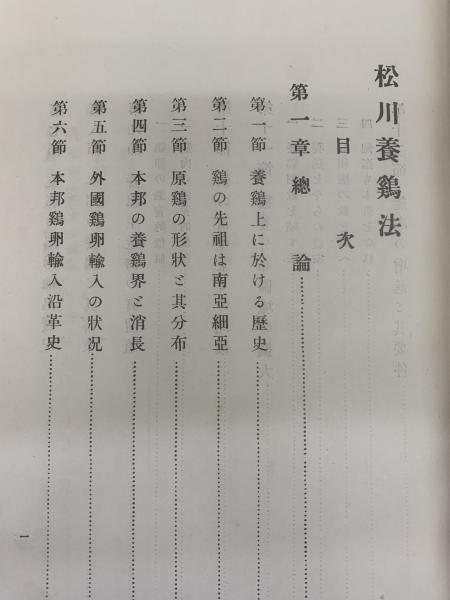 松川養鷄法
目次
第一章 總論
第一節 養鷄上に於ける歷史
第二節 鷄の先祖は南亞細亞
第三節 原鷄の形狀と其分布
第四節 本邦の養鷄界と消長
第五節 外國鷄卵輸入の狀况
第六節 本邦鷄卵輸入沿革史
一